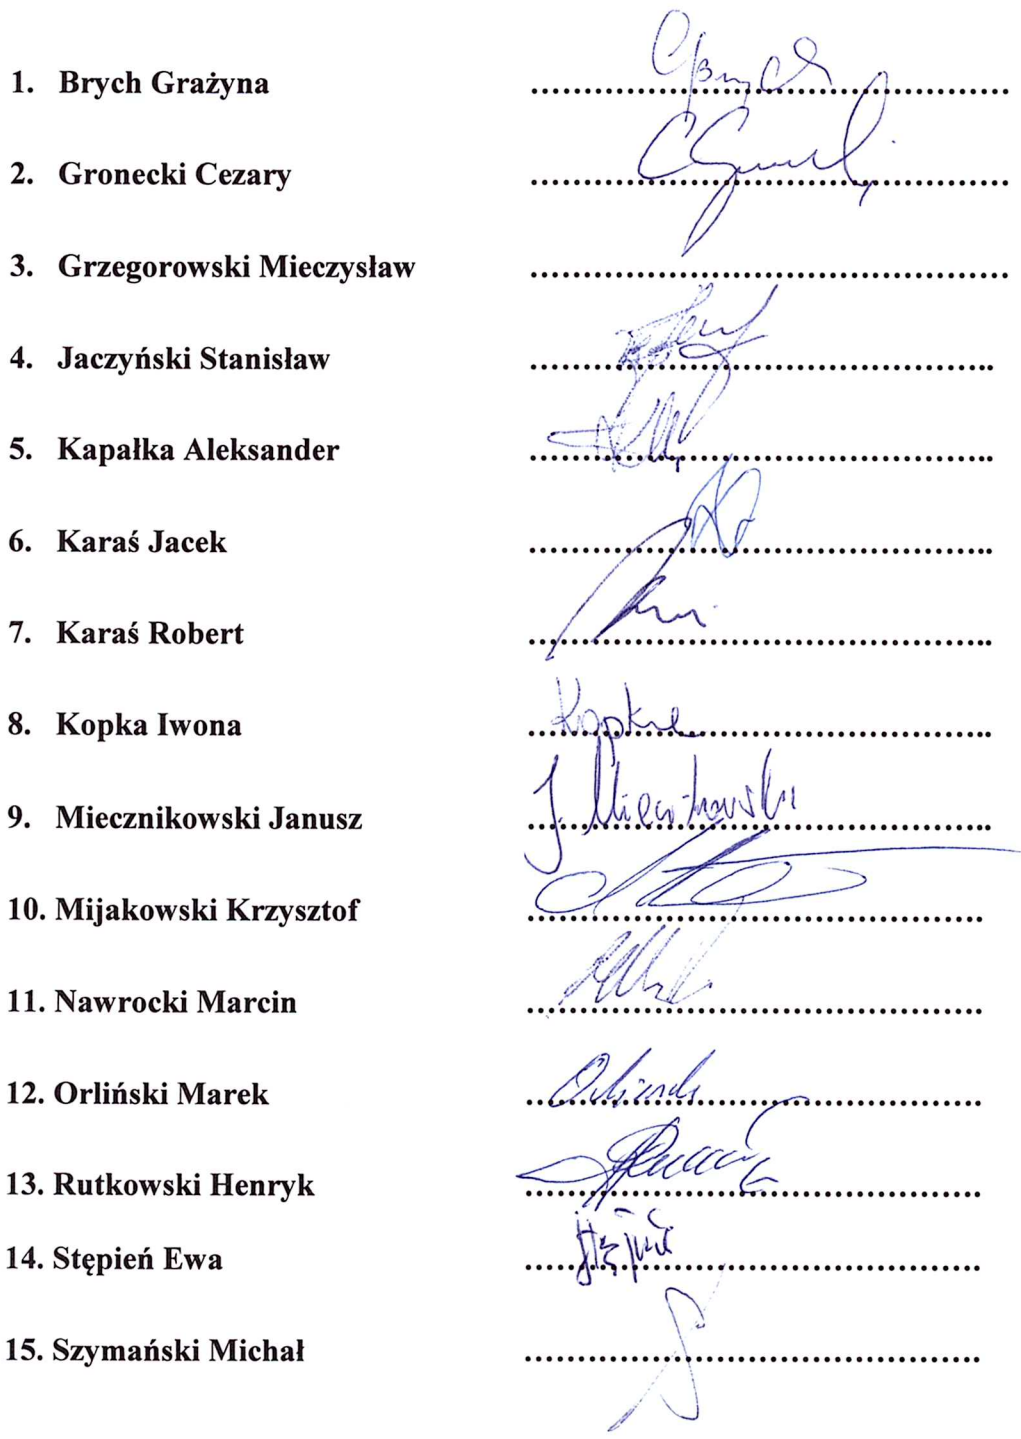 1. Brych Grażyna
2. Gronecki Cezary
3. Grzegorowski Mieczysław
4. Jaczyński Stanisław
5. Kapałka Aleksander
6. Karaś Jacek
7. Karaś Robert
8. Kopka Iwona Kopka
9. Miecznikowski Janusz J. Miecznikowski
10. Mijakowski Krzysztof
11. Nawrocki Marcin
12. Orliński Marek
13. Rutkowski Henryk
14. Stępień Ewa
15. Szymański Michał